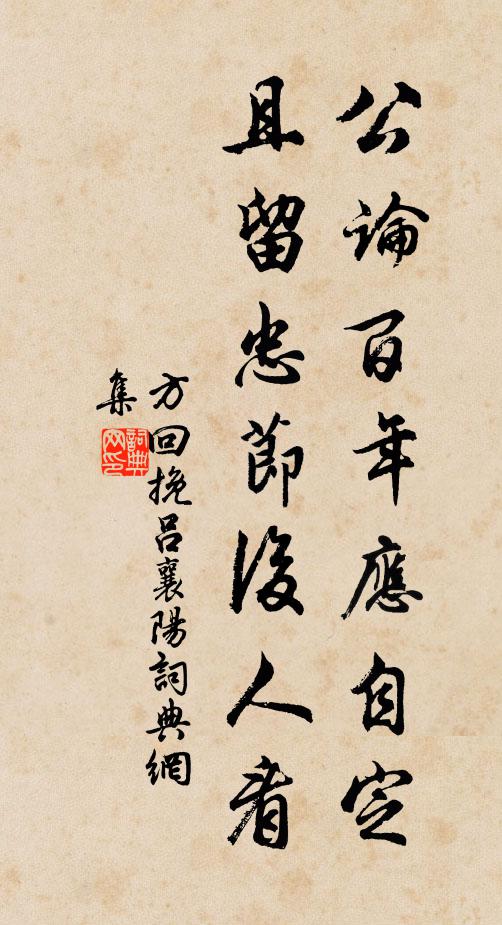 公論百年應自定
且留忠節後人看
方回挽呂襄陽詞典網
集
詞典網印